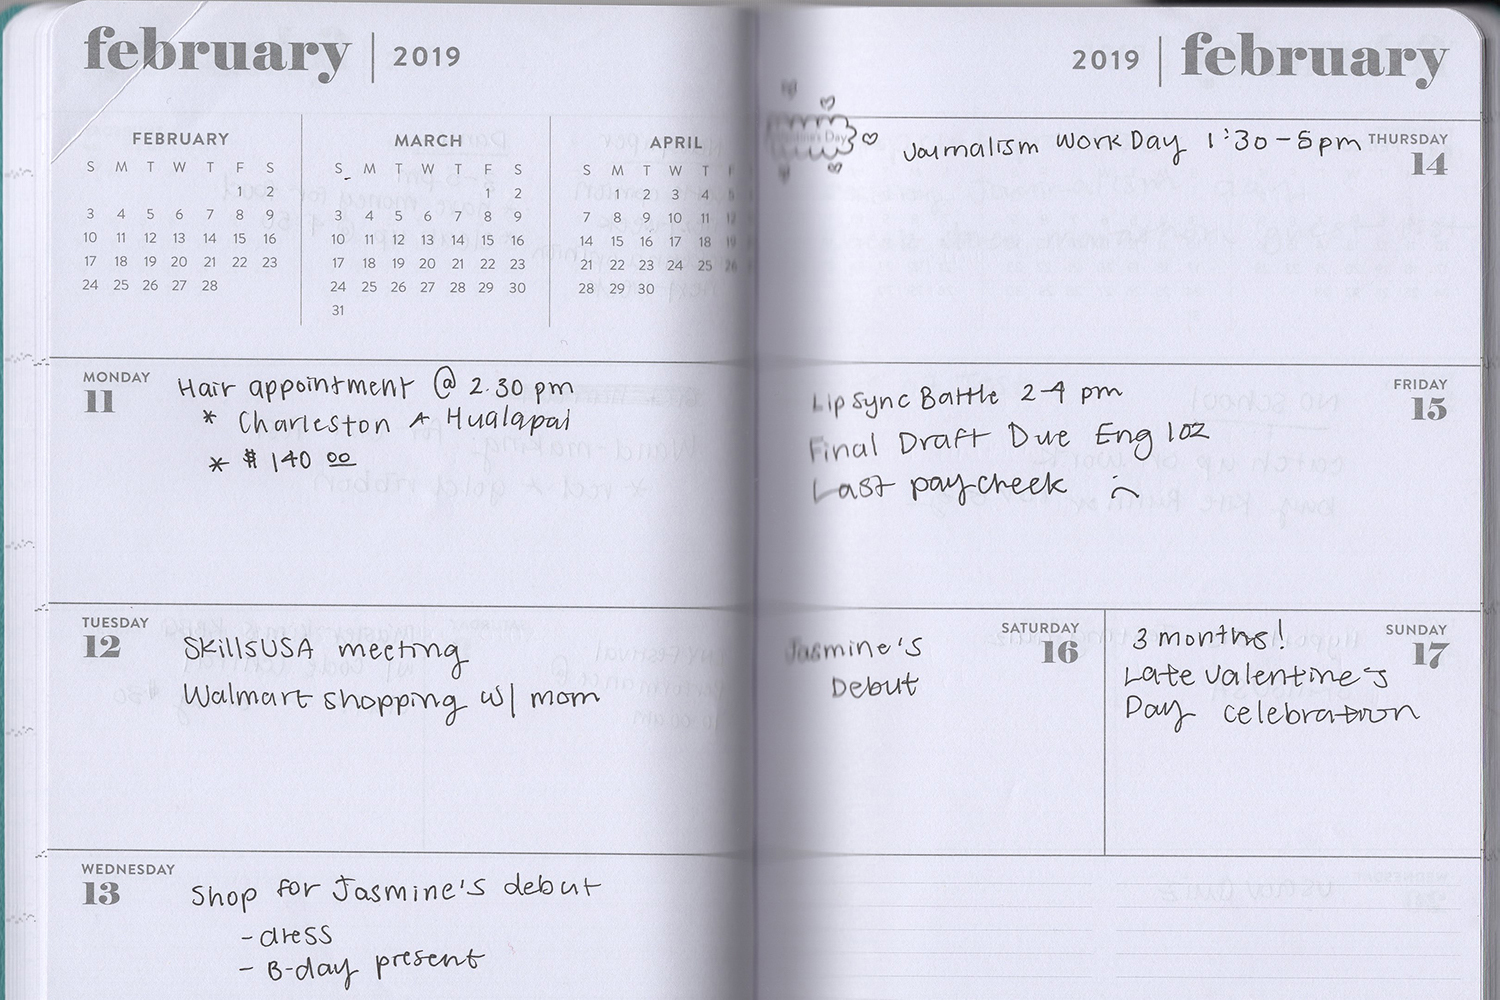 february | 2019
FEBRUARY
S M T W T F S
1 2
3 4 5 6 7 8 9
10 11 12 13 14 15 16
17 18 19 20 21 22 23
24 25 26 27 28
MARCH
S M T W T F S
1 2
3 4 5 6 7 8 9
10 11 12 13 14 15 16
17 18 19 20 21 22 23
24 25 26 27 28 29 30
31
APRIL
S M T W T F
1 2 3 4 5
7 8 9 10 11 12
14 15 16 17 18 19
21 22 23 24 25 26
28 29 30
MONDAY
11
Hair appointment @ 2:30 pm
* Charleston & Hualapai
* $140 00
TUESDAY
12
SkillsUSA meeting
Walmart shopping w/ mom
WEDNESDAY
13
Shop for Jasmine's debut
- dress
- B-day present
2019 | february
THURSDAY
14
Day
Journalism Work Day 1:30-5pm
FRIDAY
15
Lip Sync Battle 2-4 pm
Final Draft Due Eng 102
Last paycheck
SATURDAY
16
Jasmine's
Debut
SUNDAY
17
3 months!
Late Valentine's
Day celebration